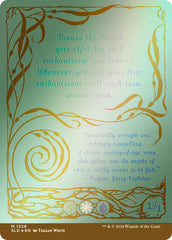 Yavara the Punla
gets +1/+1 for each
enchantment you control.
Whenever you cast your first
enchantment spell each turn,
draw a card.
"Beautifully wrought and
whingly compelling.
A classic coming-of-age romp
that delves into the depth of
what it really means to be fish."
1/1
M 1328
SLD • EN Teagan White
™ & © 2024 Wizards of the Coast